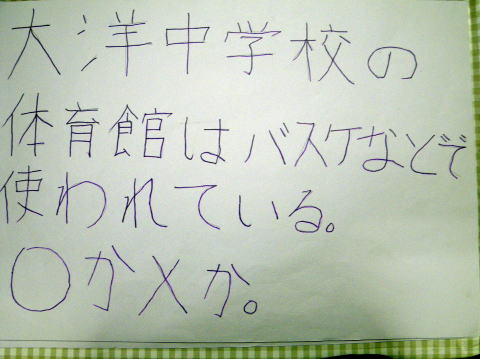 大洋中学校の
体育館はバスケなどで
使われている。
〇か×か。